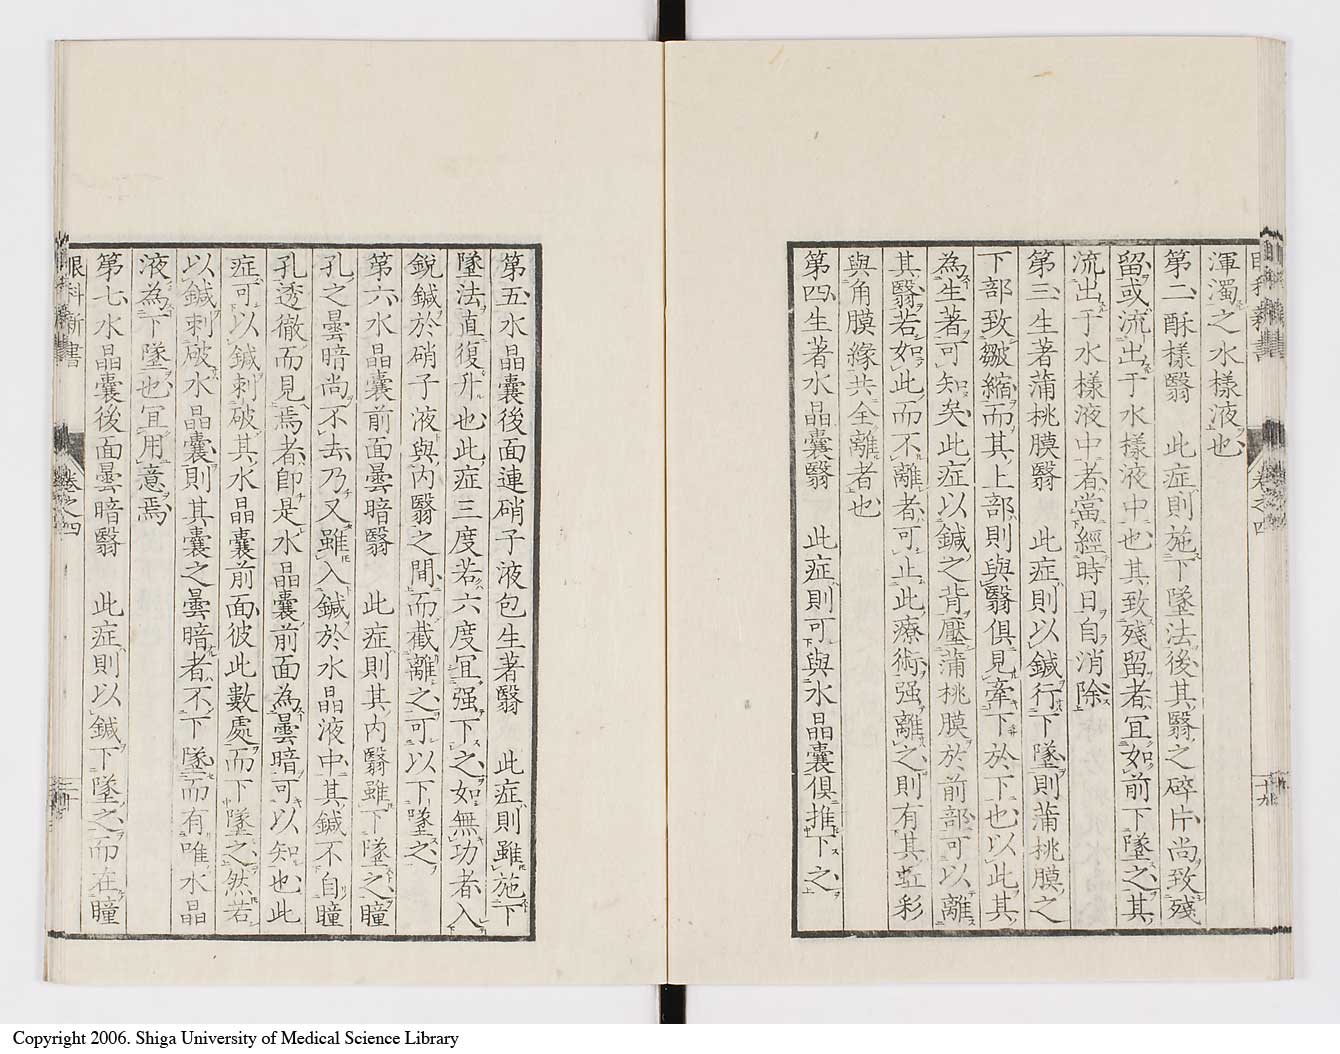 渾濁之水樣液也
第二酥樣翳　此症則施下墜法後其翳之碎片尚致殘
留或流出于水樣液中也其致殘留者宜如前下墜之其
流出于水樣液中者當經時日自消除
第三生著蒲桃膜翳　此症則以鍼行下墜則蒲桃膜之
下部致皺縮而其上部則與翳俱見牽下於下也以此其
為生著可知矣此症以鍼之背壓蒲桃膜於前部可以離
其翳若如此而不離者可止此療術强離之則有其虹彩
與角膜緣共全離者也
第四生著水晶囊翳　此症則可與水晶囊俱推下之
眼科新書
卷之四
十九
第五水晶囊後面連硝子液包生著翳　此症則雖施下
墜法直復升也此症三度若六度宜强下之如無功者入
銳鍼於硝子液與內翳之間而截離之可以下墜之
第六水晶囊前面曇暗翳　此症則其內翳雖下墜之瞳
孔之曇暗尚不去乃又雖入鍼於水晶液中其鍼不自瞳
孔透徹而見焉者卽是水晶囊前面為曇暗可以知也此
症可以鍼刺破其水晶囊前面彼此數處而下墜之然若
以鍼刺破水晶囊則其囊之曇暗者不下墜而有唯水晶
液為下墜也宜用意焉
第七水晶囊後面曇暗翳　此症則以鍼下墜之而在瞳
眼科新書
卷之四
二十
Copyright 2006. Shiga University of Medical Science Library